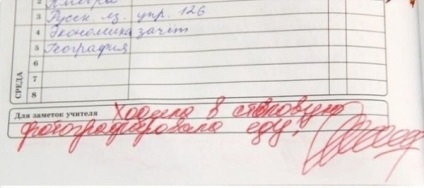 2
3 Русск. яз. упр. 126
4 Экономика зачёт
5 География
6
7
8
СРЕДА
Для заметок учителя Ходила в столовую
фотографировала еду!